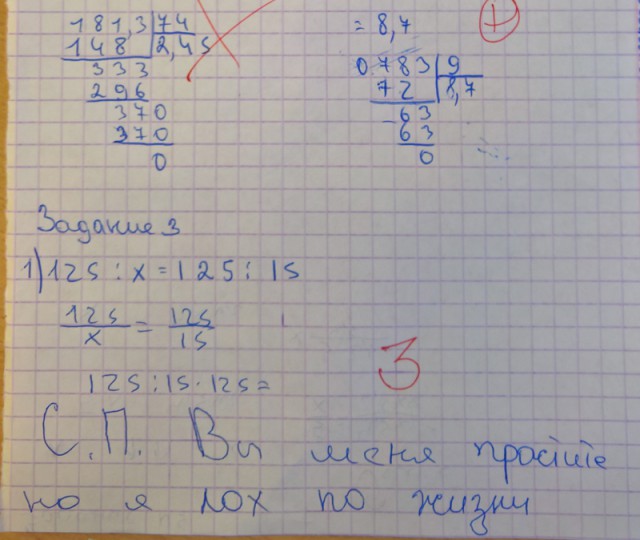 181,3 74
148 2,45
333
296
370
370
0
= 8,7
0783 9
72 8,7
63
63
0
Задание 3
1) 125 : x = 125 : 15
125/x = 125/15
125 : 15 · 125 =
3
С.П. Вы меня простите
но я лох по жизни